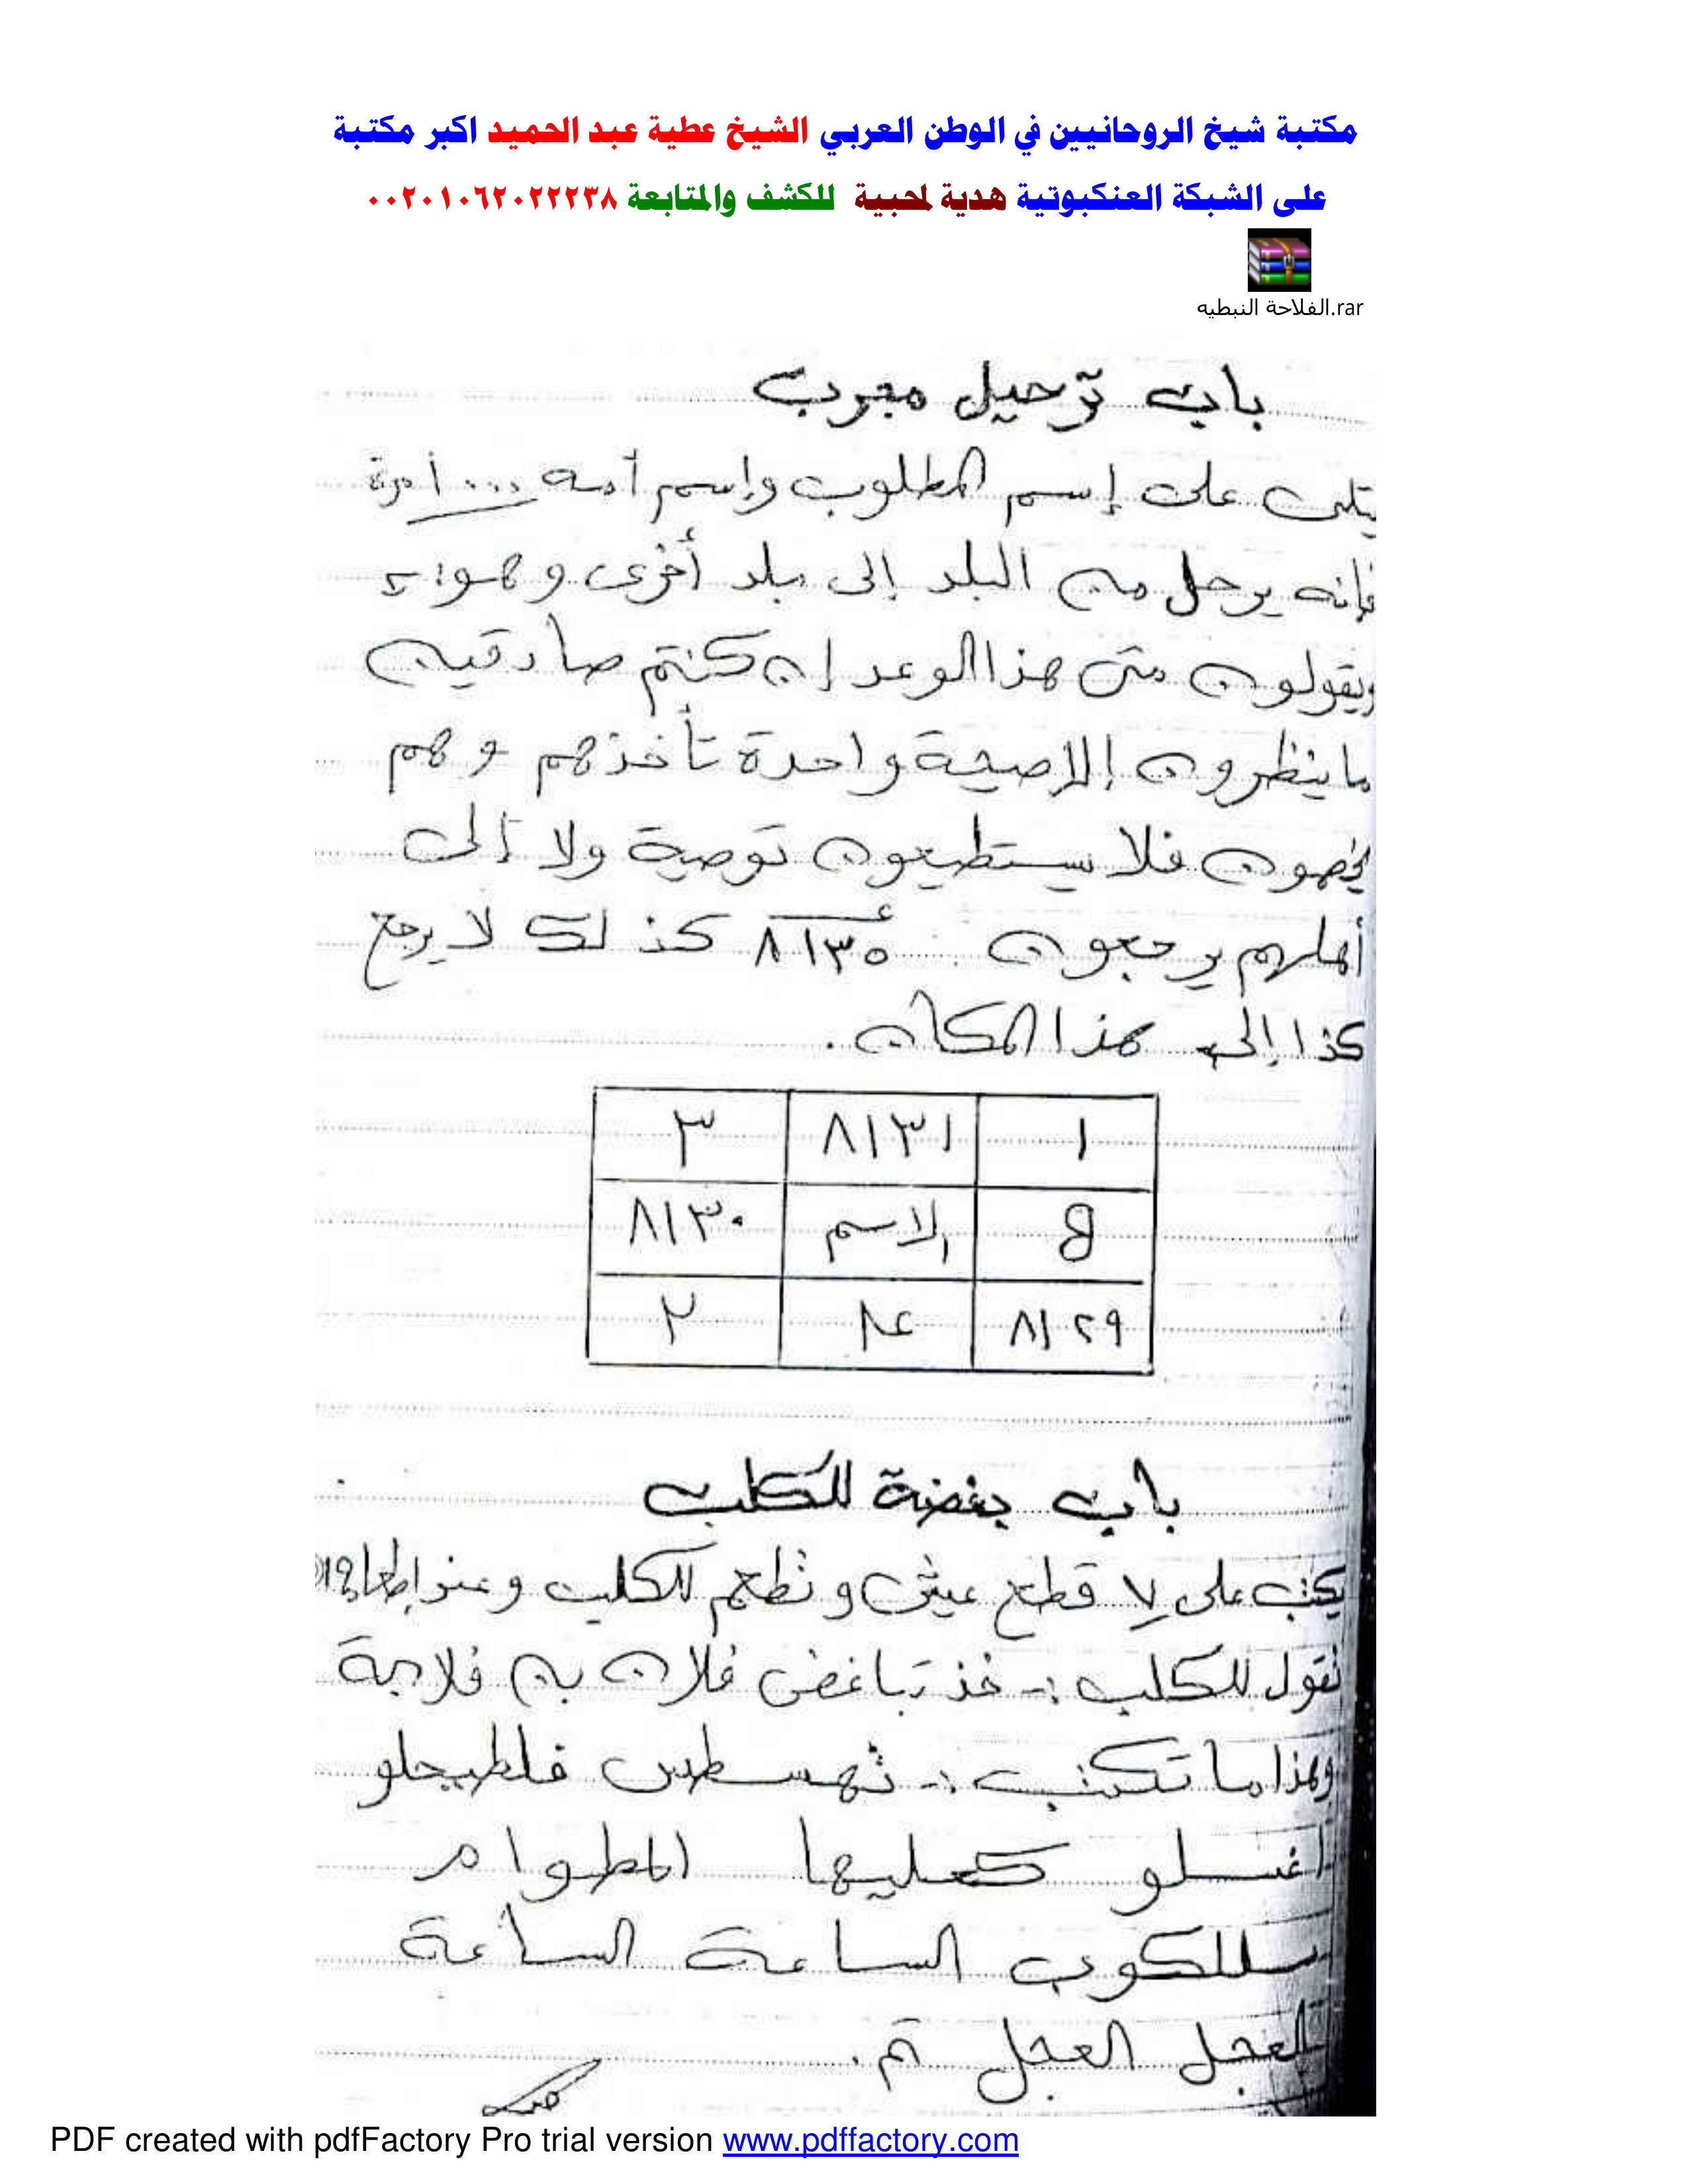 مكتبة شيخ الروحانيين في الوطن العربي الشيخ عطية عبد الحميد اكبر مكتبة
على الشبكة العنكبوتية هدية لمحبية للكشف والمتابعة ٠٠٢٠١٠٦٢٠٢٢٢٣٨
الفلاحة النبطيه.rar
باب ترحيل مجرب
يتلى على إسم المطلوب وإسم أمه ١٠٠٠ مرة
فإنه يرحل من البلد إلى بلد أخرى وهو:
ويقولون متى هذا الوعد إن كنتم صادقين
ما ينظرون إلا صيحة واحدة تأخذهم وهم
يخصمون فلا يستطيعون توصية ولا إلى
أهلهم يرجعون ٨١٣٥ كذلك لا يرجع
كذا إلى هذا المكان.
١ ٨١٣١ ٣
الاسم ٨١٣٠
٨١٢٩ ٤ ٢
باب بغضة للكلب
يكتب على قطع عيش وتطعم للكلب وعند
تقول للكلب :- خذ تباغض فلان بن فلانة
وهذا ما تكتب :- ثهسطس فلطيحلو
اغسلو كعليها المطوام
سللكوب الساعة الساعة
العجل العجل تم.
PDF created with pdfFactory Pro trial version www.pdffactory.com